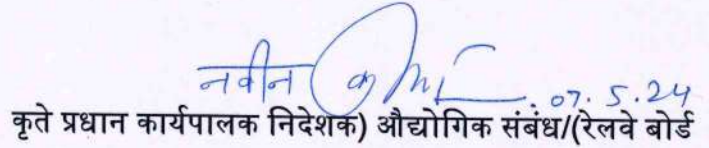 नवीन कुमार 07.5.24
कृते प्रधान कार्यपालक निदेशक) औद्योगिक संबंध/(रेलवे बोर्ड